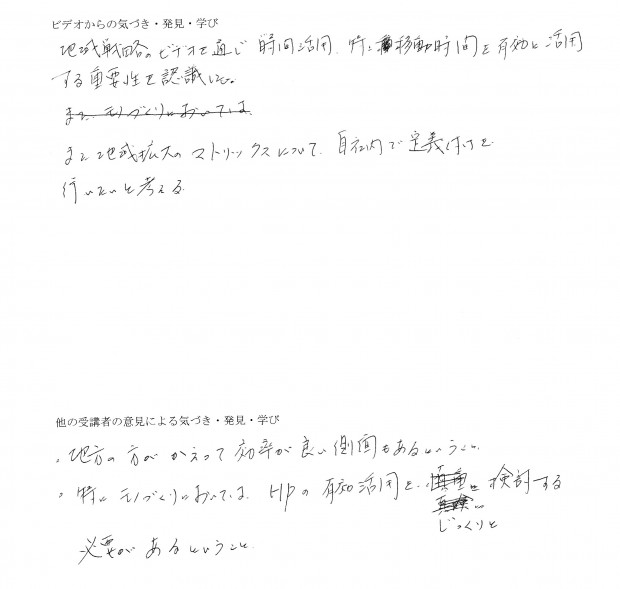 ビデオからの気づき・発見・学び
地域戦略のビデオを通じ 時間活用、特に移動時間を有効に活用
する重要性を認識した。
また、モノづくりにおいては
また地域拡大のマトリックスについて、自社内で定義付けを
行いたいと考える。
他の受講者の意見による気づき・発見・学び
・地方の方がかえって効率が良い側面もあるということ。
・特にモノづくりにおいては、HPの有効活用を、慎重に検討する
真剣に
じっくりと
必要があるということ。